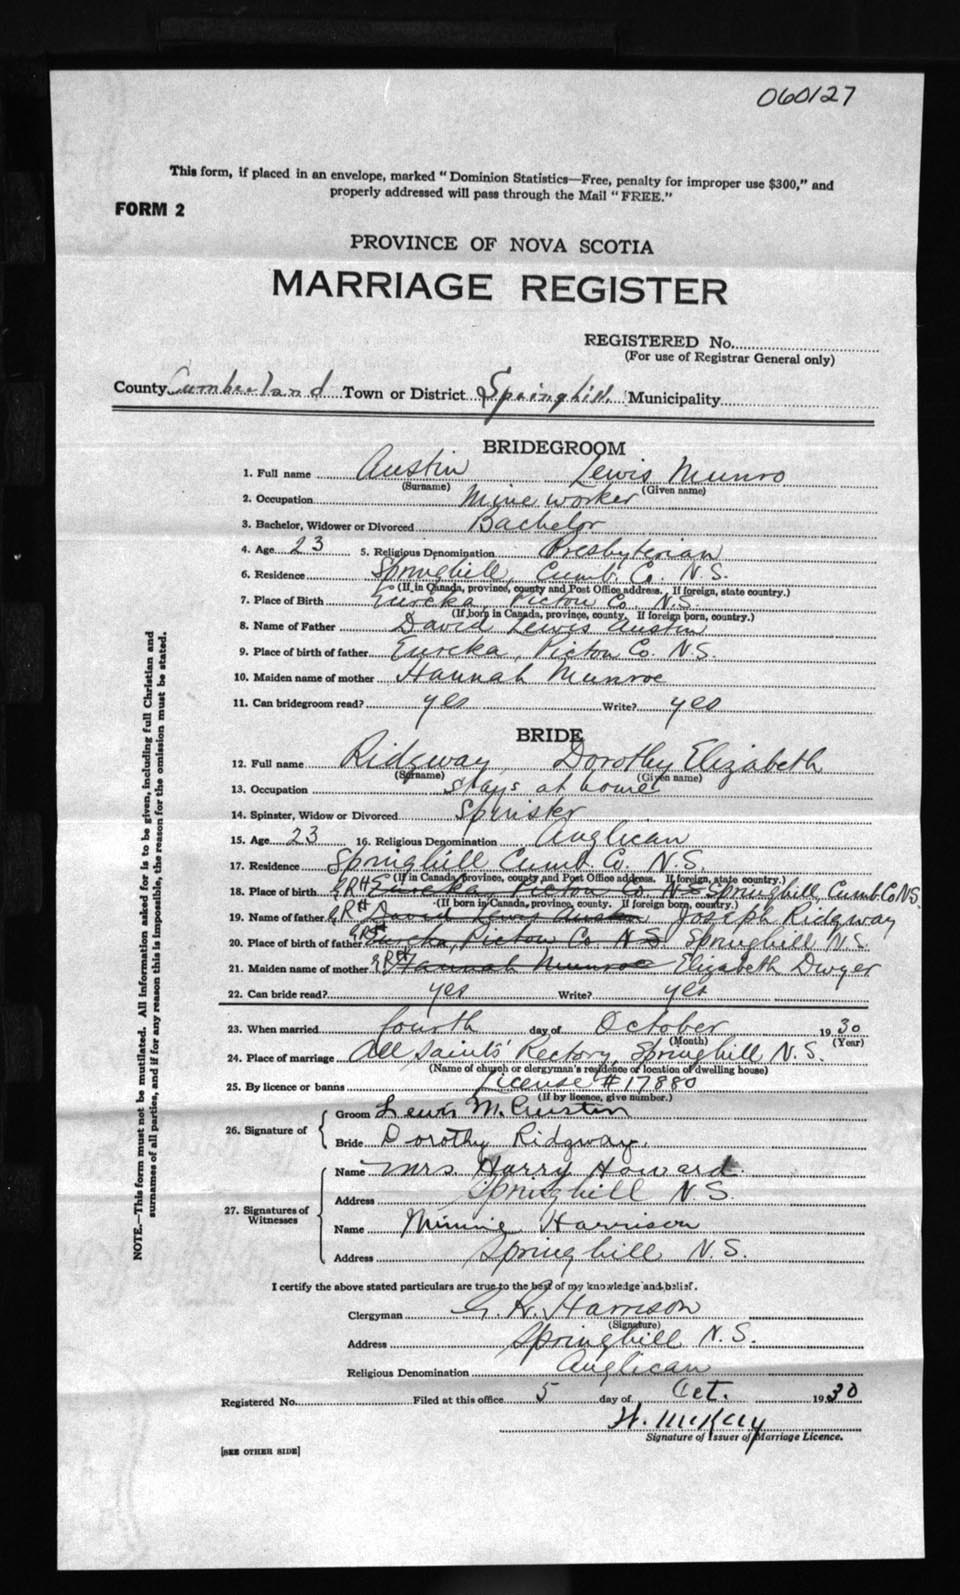 060127
This form, if placed in an envelope, marked "Dominion Statistics—Free, penalty for improper use $300," and
properly addressed will pass through the Mail "FREE."
FORM 2
PROVINCE OF NOVA SCOTIA
MARRIAGE REGISTER
REGISTERED No.
(For use of Registrar General only)
County Cumberland Town or District Springhill Municipality
BRIDEGROOM
1. Full name Austin Lewis Munro
(Surname) (Given name)
2. Occupation Mine worker
3. Bachelor, Widower or Divorced Bachelor
4. Age 23 5. Religious Denomination Presbyterian
6. Residence Springhill, Cumb. Co. N.S.
(If in Canada, province, county and Post Office address. If foreign, state country.)
7. Place of Birth Eureka, Pictou Co N.S.
(If born in Canada, province, county. If foreign born, country.)
8. Name of Father David Lewis Austin
9. Place of birth of father Eureka, Pictou Co. N.S.
10. Maiden name of mother Hannah Munroe
11. Can bridegroom read? yes Write? yes
BRIDE
12. Full name Ridgway Dorothy Elizabeth
(Surname) (Given name)
13. Occupation stays at home
14. Spinster, Widow or Divorced Spinster
15. Age 23 16. Religious Denomination Anglican
17. Residence Springhill Cumb. Co. N.S.
(If in Canada, province, county and Post Office address. If foreign, state country.)
18. Place of birth GRH Eureka, Pictou Co. N.S Springhill, Cumb. Co N.S.
(If born in Canada, province, county. If foreign born, country.)
19. Name of father GRH David Lewis Austin Joseph Ridgway
20. Place of birth of father GRH Eureka, Pictou Co. N.S Springhill N.S.
21. Maiden name of mother GRH Hannah Munroe Elizabeth Dwyer
22. Can bride read? yes Write? yes
23. When married fourth day of October 1930
(Month) (Year)
24. Place of marriage All Saints' Rectory, Springhill N.S.
(Name of church or clergyman's residence or location of dwelling house)
25. By licence or banns License #17880
(If by licence, give number.)
26. Signature of
Groom Lewis M. Austin
Bride Dorothy Ridgway.
27. Signatures of Witnesses
Name Mrs. Harry Howard.
Address Springhill N.S.
Name Minnie Harrison
Address Springhill N.S.
I certify the above stated particulars are true to the best of my knowledge and belief.
Clergyman G. R. Harrison
(Signature)
Address Springhill N.S.
Religious Denomination Anglican
Registered No. Filed at this office 5 day of Oct. 1930
H. McKay
Signature of Issuer of Marriage Licence.
[SEE OTHER SIDE]
NOTE.—This form must not be mutilated. All information asked for is to be given, including full Christian and
surnames of all parties, and if for any reason this is impossible, the reason for the omission must be stated.